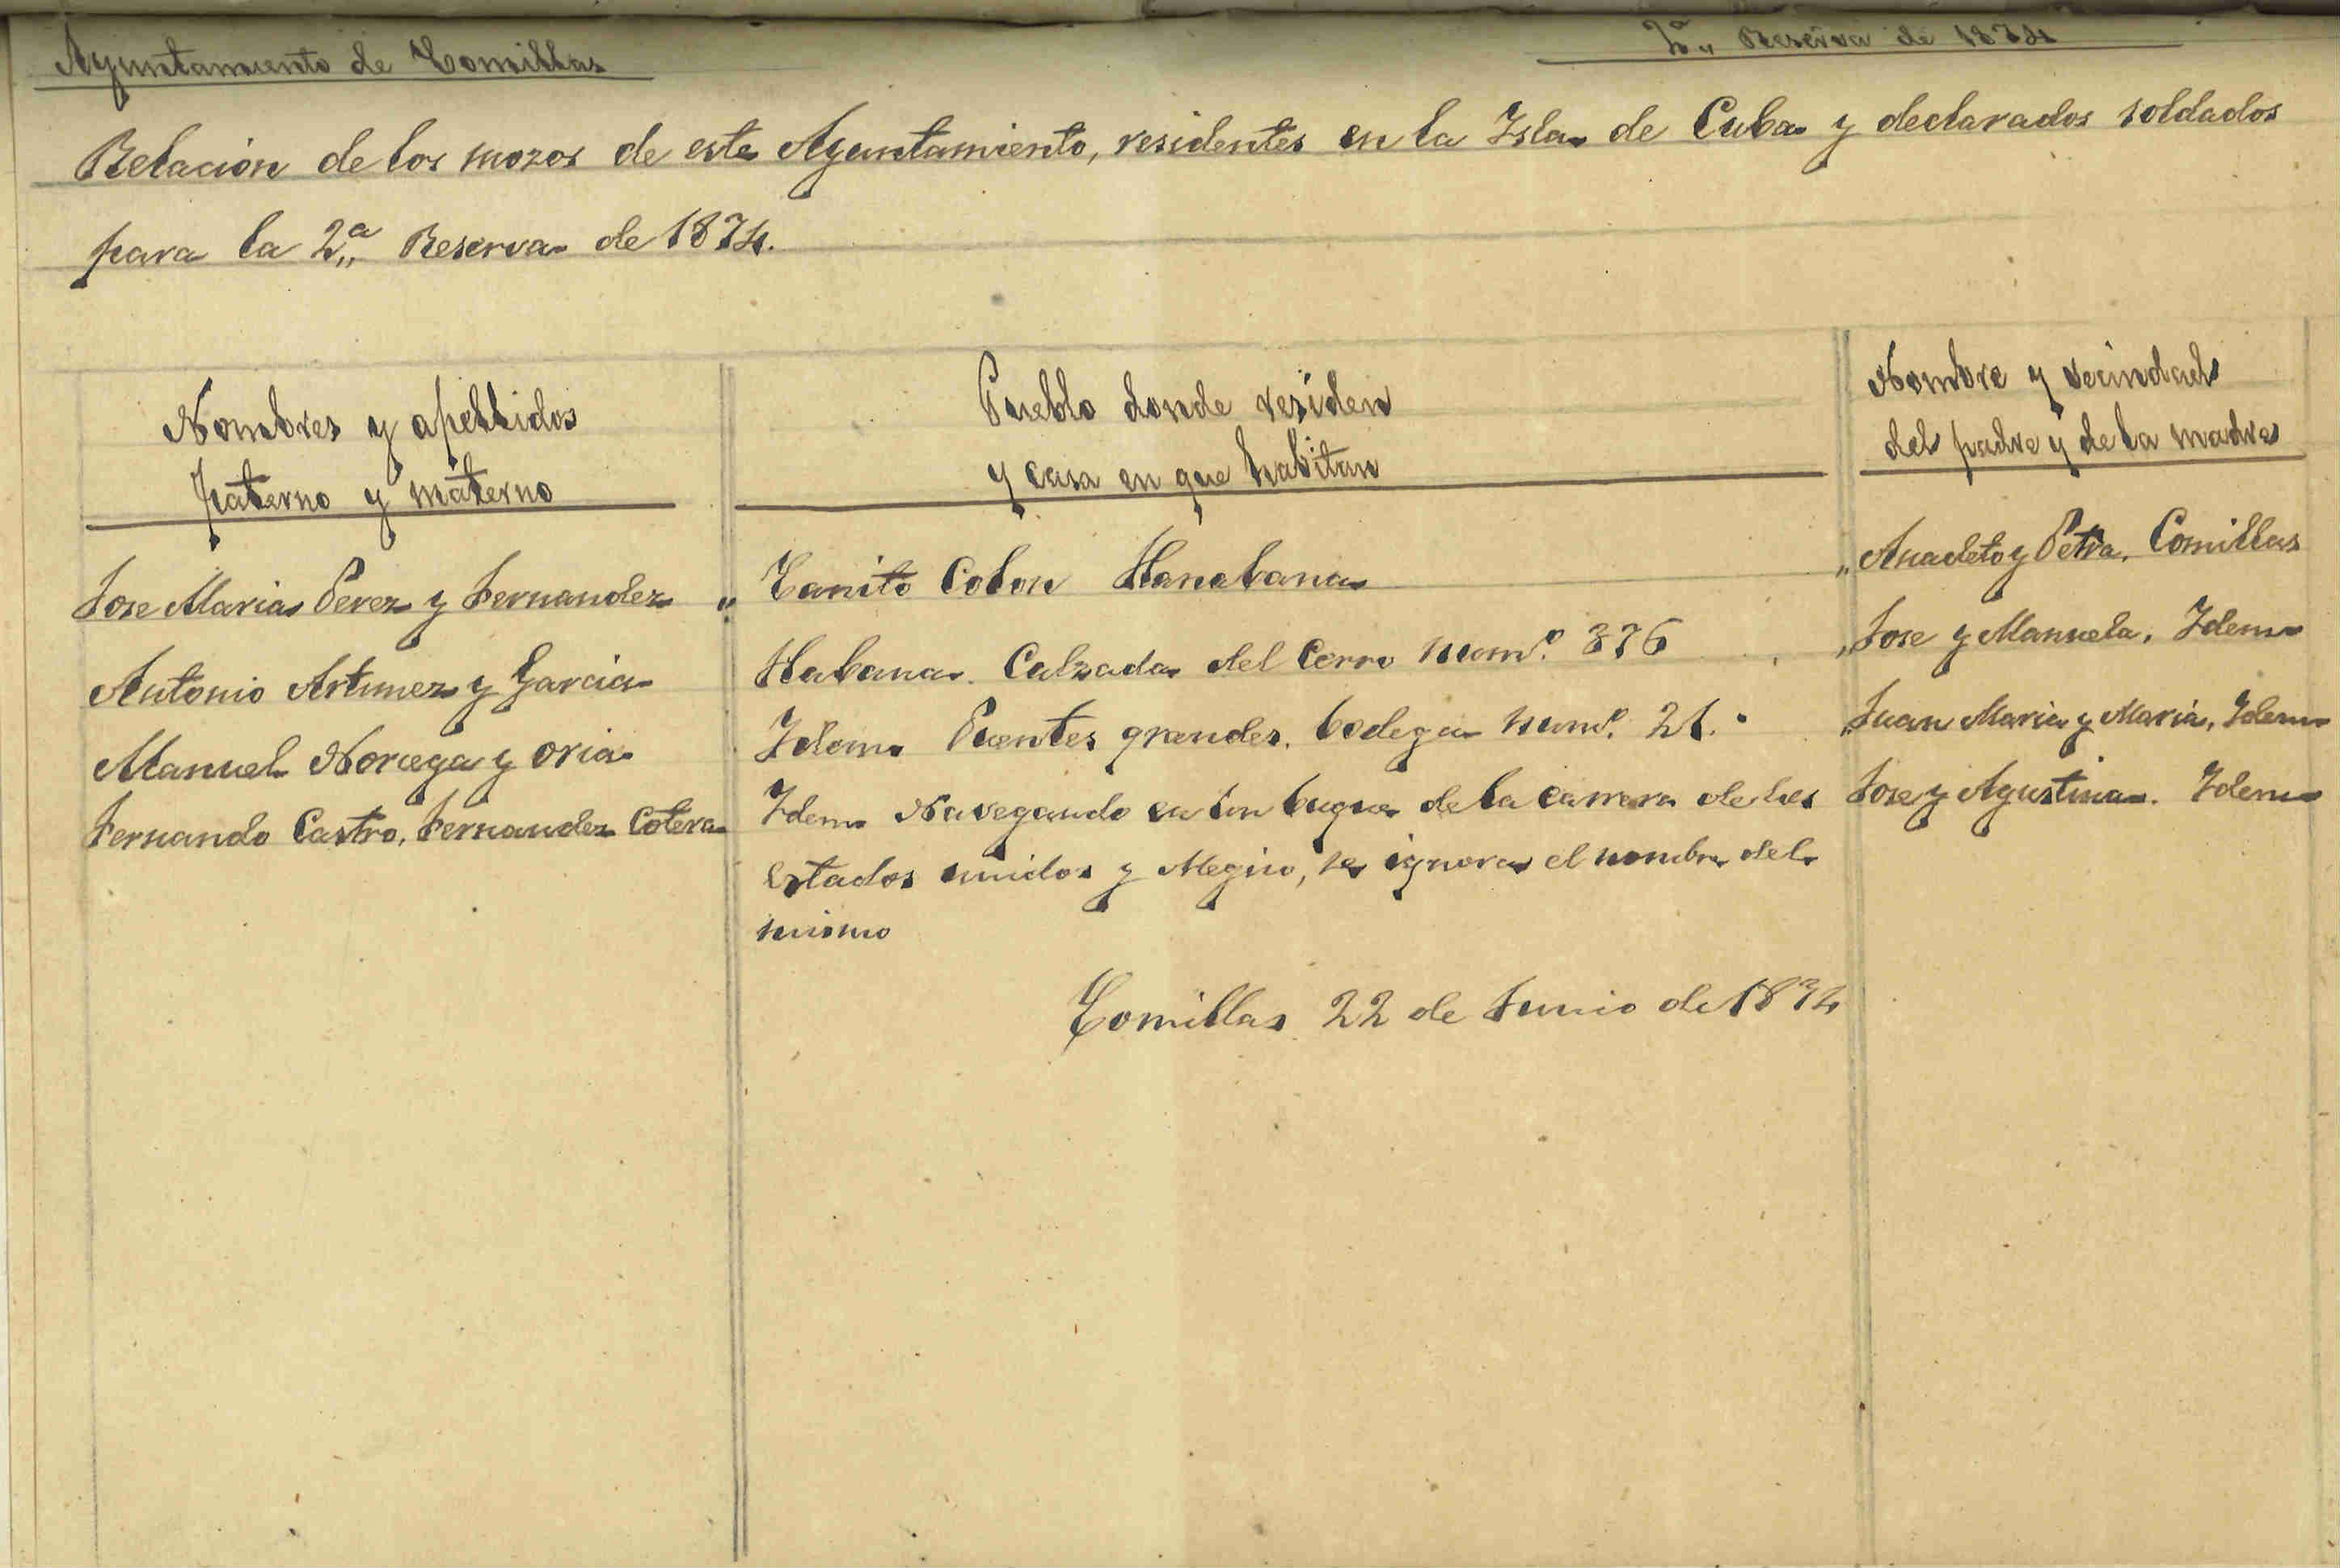 Ayuntamiento de Comillas
2ª Reserva de 1874
Relacion de los mozos de este Ayuntamiento, residentes en la Isla de Cuba y declarados soldados
para la 2ª Reserva de 1874.
Nombres y apellidos
paterno y materno
Pueblo donde residen
y casa en que habitan
Nombre y vecindad
del padre y de la madre
Jose Maria Perez y Fernandez " Canito Colon Hanabana " Anacleto y Petra, Comillas
Antonio Artunez y Garcia Habana. Calzada del Cerro num.º 376 " Jose y Manuela, Idem
Manuel Noriega y Oria Idem Puentes grandes, bodega num.º 21. " Juan Maria y Maria, Idem
Fernando Castro, Fernandez Cotera Idem Navegando en un buque de la carrera de los Jose y Agustina. Idem
Estados unidos y Megico, se ignora el nombre del
mismo
Comillas 22 de Junio de 1874